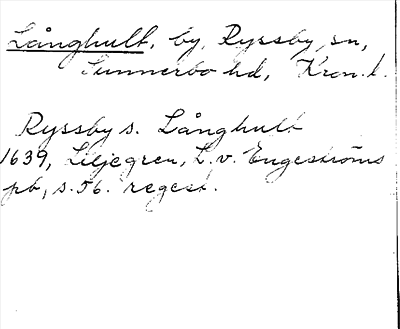 Långhult, by, Ryssby sn,
Sunnerbo hd, Kron. l.
Ryssby s. Långhult
1639, Liljegren, L. v. Engeströms
pb, s. 56. regest.